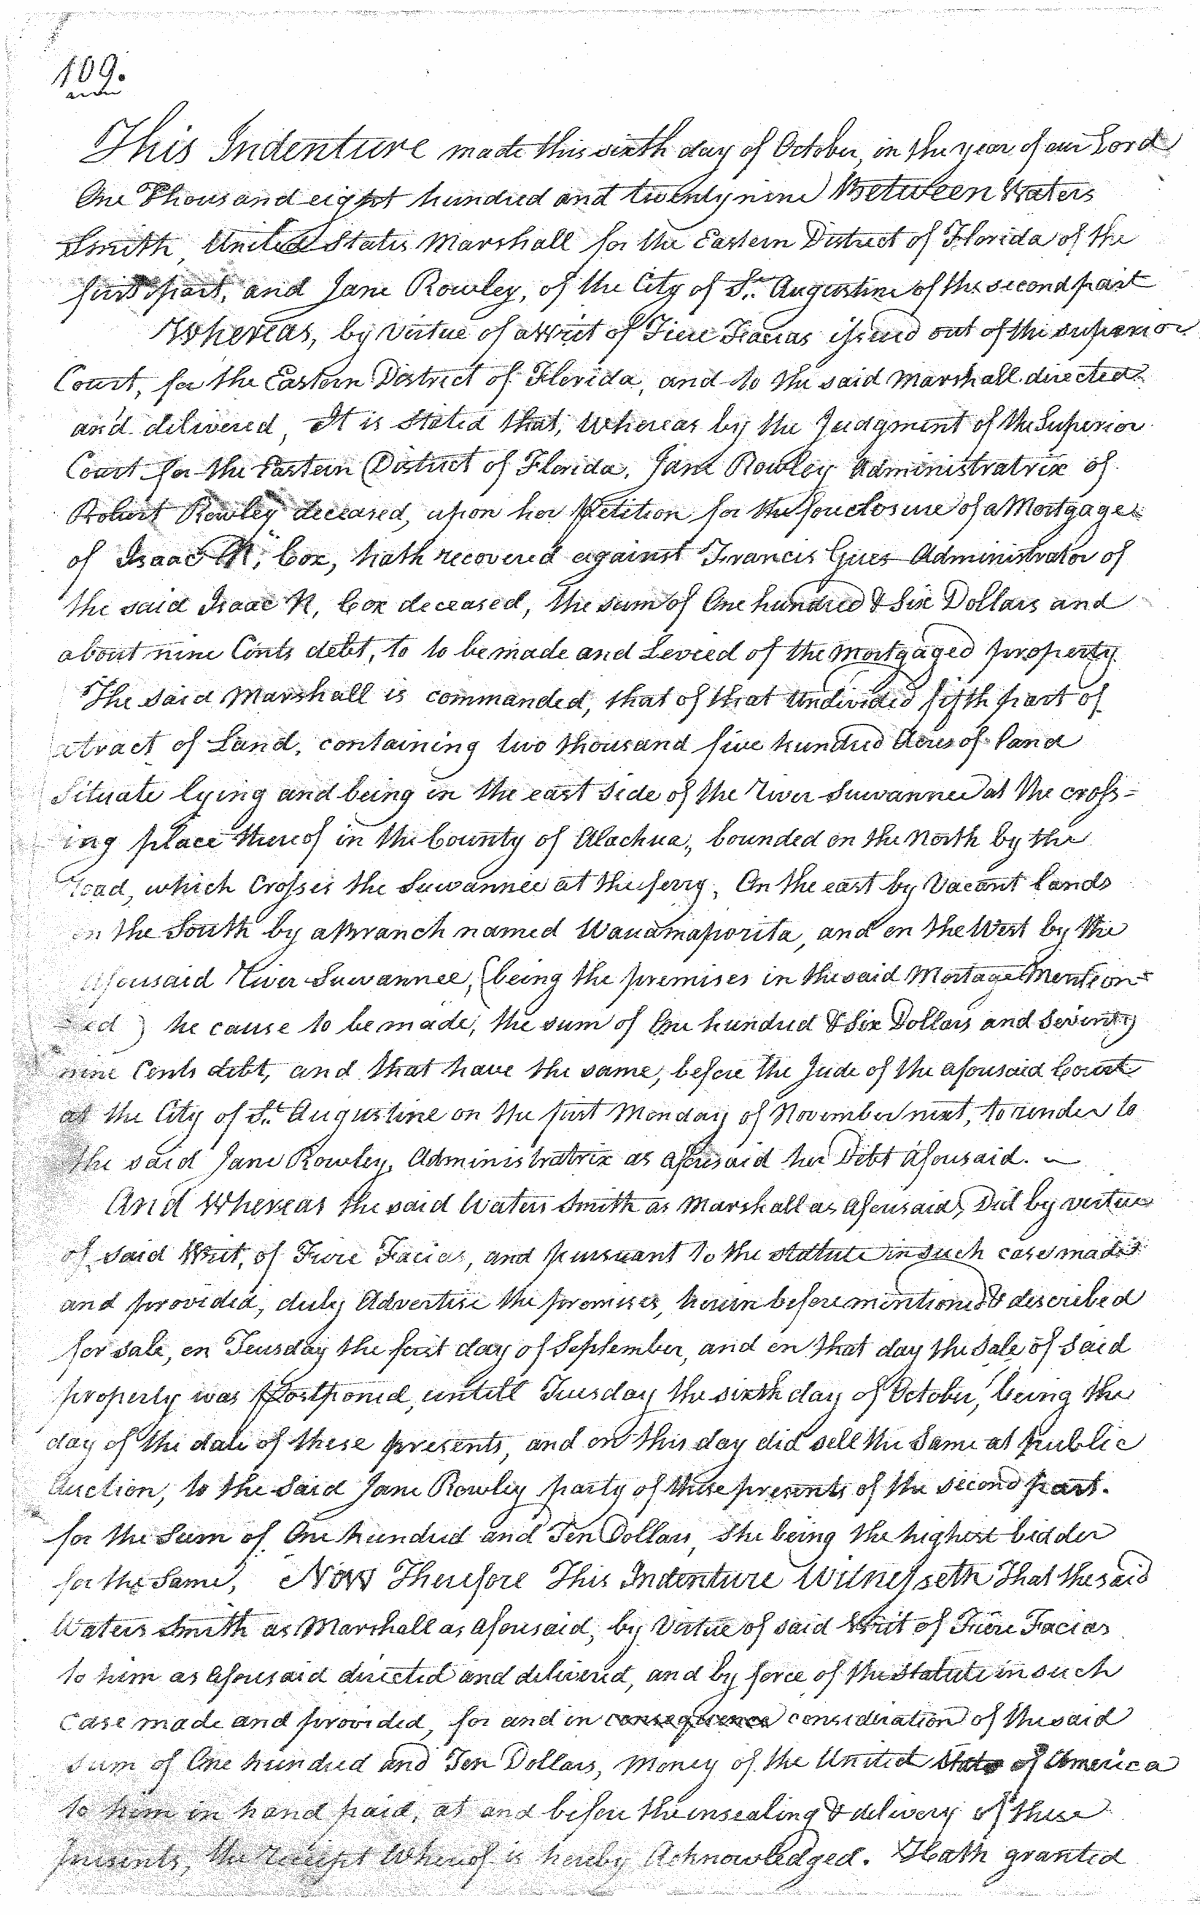 109.
This Indenture made this sixth day of October, in the year of our Lord
One Thousand eight hundred and twenty nine Between Waters
Smith, United States Marshall for the Eastern District of Florida of the
first part, and Jane Rowley, of the City of St. Augustine of the second part
Whereas, by Virtue of a Writ of Fiere Facias issued out of the superior
Court, for the Eastern District of Florida, and to the said Marshall directed
and delivered, It is stated that, Whereas by the Judgment of the Superior
Court for the Eastern District of Florida, Jane Rowley Administratrix of
Robert Rowley deceased, upon her Petition for the foreclosure of a Mortgage
of Isaac N. Cox, hath recovered against Francis Gues Administrator of
the said Isaac N. Cox deceased, the sum of One hundred & Six Dollars and
about nine Cents debt, to to be made and Levied of the Mortgaged property
The said Marshall is commanded, that of that Undivided fifth part of
a tract of Land, containing two thousand five hundred Acres of land
Situate lying and being in the east side of the River Suwannee at the cross=
ing place thereof in the County of Alachua, bounded on the North by the
road, which Crosses the Suwannee at the ferry, On the east by Vacant lands
on the South by a Branch named Wauamaporita, and on the West by the
aforesaid River Suwannee, (being the premises in the said Mortage Mention=
=ed) he cause to be made, the sum of One hundred & Six Dollars and Seventy
nine Cents debt, and that have the same, before the Jude of the aforesaid Court
at the City of St. Augustine on the first Monday of November next, to render to
the said Jane Rowley, Administratrix as aforesaid her Debt aforesaid.
And Whereas the said Waters Smith as Marshall as aforesaid, Did by virtue
of said Writ, of Fiere Facias, and pursuant to the statute in such case made
and provided, duly Advertise the premises, herein before mentioned & described
for sale, on Teusday the first day of September, and on that day the sale of said
property was Postponed, untill Tuesday the sixth day of October, being the
day of the date of these presents, and on this day did sell the Same at public
Auction, to the said Jane Rowley party of these presents of the second part.
for the Sum of One hundred and Ten Dollars, She being the highest bidder
for the Same, Now Therefore This Indenture Witnesseth That the said
Waters Smith as Marshall as aforesaid, by Virtue of said Writ of Fiere Facias
to him as aforesaid directed and delivered, and by force of the Statute in such
Case made and provided, for and in consequence consideration of the said
sum of One hundred and Ten Dollars, Money of the United States of America
to him in hand paid, at and before the ensealing & delivery of these
presents, the receipt Whereof is hereby Acknowledged. Hath granted